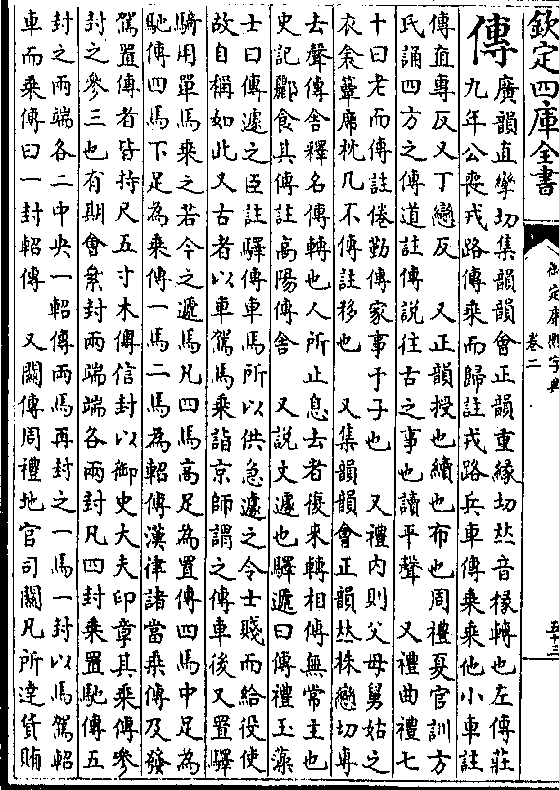 欽定四庫全書
御定康熙字典
卷二
傳
廣韻直攣切集韻韻會正韻重緣切𠀤音椽轉也左傳莊
九年公喪戎路傳乘而歸註戎路兵車傳乘乘他小車註
傳直專反又丁戀反　又正韻授也續也布也周禮夏官訓方
氏誦四方之傳道註傳說往古之事也讀平聲　又禮曲禮七
十曰老而傳註倦勤傳家事于子也　又禮內則父母舅姑之
衣衾簟席枕几不傳註移也　又集韻韻會正韻𠀤株戀切專
去聲傳舍釋名傳轉也人所止息去者復來轉相傳無常主也
史記酈食其傳註高陽傳舍　又說文遽也驛遞曰傳禮玉藻
士曰傳遽之臣註驛傳車馬所以供急遽之令士賤而給役使
故自稱如此又古者以車駕馬乘詣京師謂之傳車後又置驛
騎用單馬乘之若今之遞馬凡四馬高足為置傳四馬中足為
馳傳四馬下足為乘傳一馬二馬為軺傳漢律諸當乘傳及發
駕置傳者皆持尺五寸木傳信封以御史大夫印章其乘傳參
封之參三也有期會絫封兩端端各兩封凡四封乘置馳傳五
封之兩端各二中央一軺傳兩馬再封之一馬一封以馬駕軺
車而乘傳曰一封軺傳　又關傳周禮地官司關凡所達貨賄